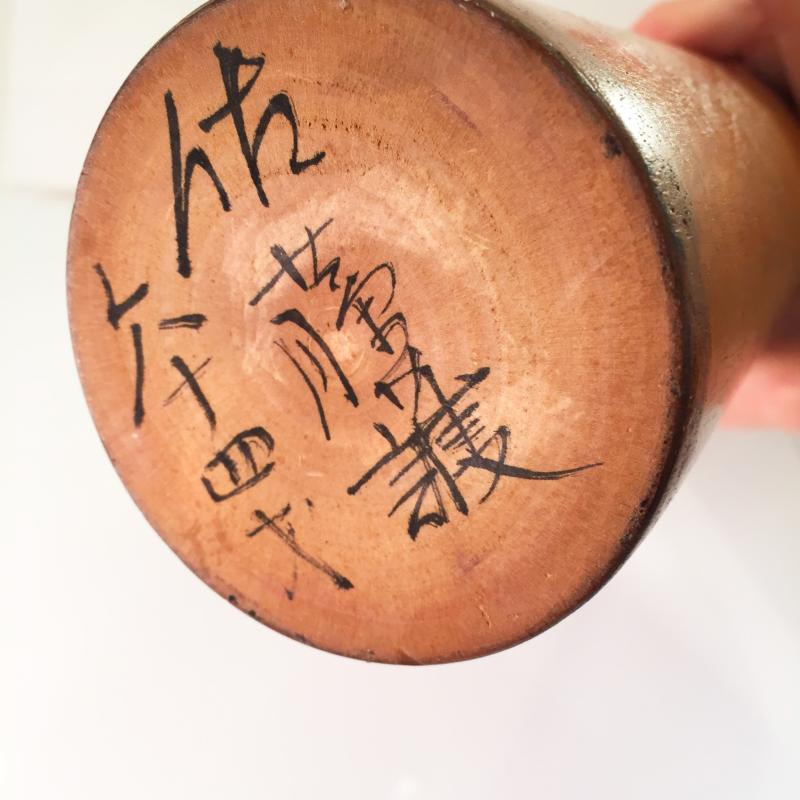 佐藤護
六十四才